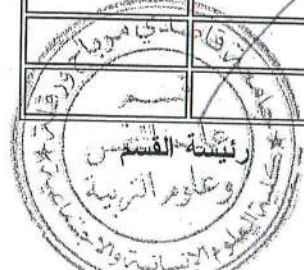 جامعة قاصدي مرباح ورقلة
قسم
رئيسة القسم
علم النفس
وعلوم التربية
كلية العلوم الإنسانية والاجتماعية